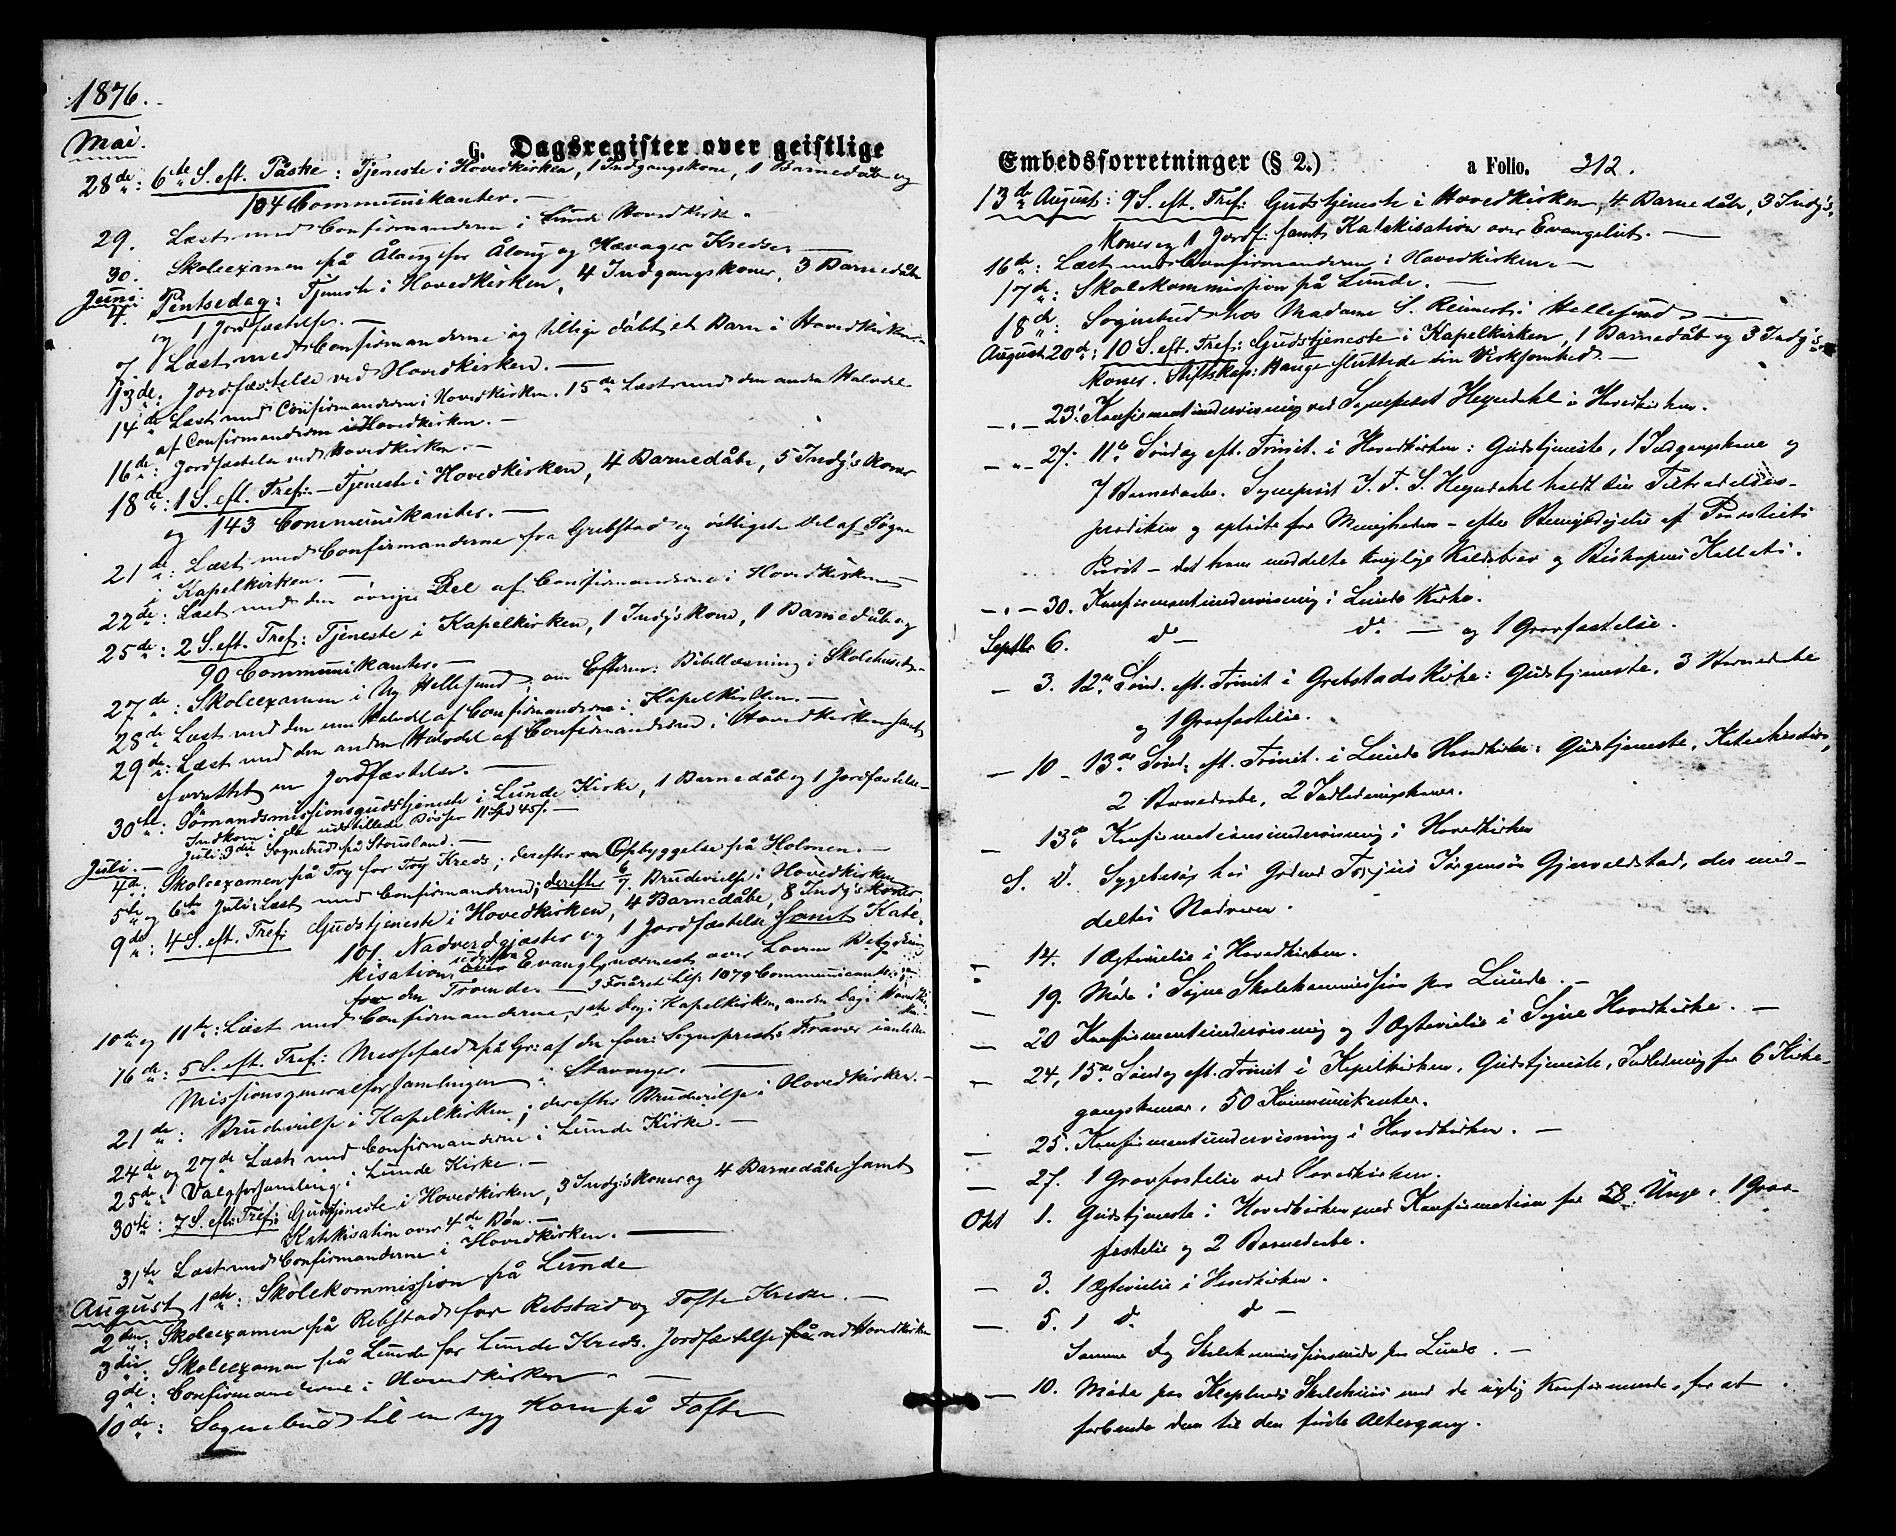 1876.
Mai.
G. Dagsregister over geistlige
28de: 6te S. eft. Påske: Tjeneste i Hovedkirken, 1 Indgangskone, 1 Barnedåb og
104 Communikanter. —
29. Læst med Confirmanderne i Lunde Hovedkirke. —
30. Skoleexamen på Ålaug for Ålaug og Kredse —
Juni. 4. Pintsedag: Tjeneste i Hovedkirken, 4 Indgangskoner, 3 Barnedåb
og 1 Jordfæstelse. —
7. Læst med Confirmanderne og tillige døbt et Barn i Hovedkirken. —
13de. Jordfæstelse ved Hovedkirken. —
14de Læst med Confirmanderne i Hovedkirken. 15de Læst med den anden Halvdel
af Confirmanderne i Hovedkirken. —
16de: Jordfæstelse ved Hovedkirken. —
18de: 1 S. eft. Tref: — Tjeneste i Hovedkirken, 4 Barnedåb, 5 Indg's koner
og 143 Communikanter. —
21de: Læst med Confirmanderne fra Grebstad og østligste Del af Søgne
i Kapelkirken. —
22de: Læst med den øvrige Del af Confirmanderne i Hovedkirken —
25de: 2 S. eft. Tref: Tjeneste i Kapelkirken, 1 Indg's kone, 1 Barnedåb og
90 Communikanter. —
27de: Skoleexamen i Ny Hellesund; om Efterm: Bibellæsning i Skolehuset. —
28de Læst med den ene Halvdel af Confirmanderne i Kapelkirken. —
29de: Læst med den anden Halvdel af Confirmanderne i Hovedkirken samt
forrettet en Jordfæstelse. —
30te: Sømandsmissionsgudstjeneste i Lunde Kirke, 1 Barnedåb og 1 Jordfæstelse. —
Indkom i de udstillede Bøsser 11 Spd 45 ſ. —
Juli: 3die Sognebud på Stousland. —
Juli. —
4de: Skoleexamen på Try for Try Kreds; derefter en Opbyggelse på Holmen. —
5te og 6te Juli: Læst med Confirmanderne; derefter 6/7 Brudevielse i Hovedkirken
9de: 4 S. eft. Tref: Gudstjeneste i Hovedkirken, 4 Barnedåbe, 8 Indg's koner
101 Nadverdgjæster og 1 Jordfæstelse samt Kate-
kisation over Evangl. nærmest over Lovens Betydning
for den Troende. — I Foråret tils. 1079 Communicanter
10de og 11te: Læst med Confirmanderne, 1ste Dag i Kapelkirken, anden Dag i Hovedkirken
16de: 5 S. eft. Tref: Messefald på Gr: af den forr: Sognepræsts Fravær i anledn
Missionsgeneralforsamlingen i Stavanger. —
21de: Brudevielse i Kapelkirken; derefter Brudevielse i Hovedkirken. —
24de og 27de Læst med Confirmanderne i Lunde Kirke. —
25de: Valgforsamling i Lunde Kirke. —
30te: 7 S. eft: Tref: Gudstjeneste i Hovedkirken, 3 Indg's koner og 4 Barnedåbe samt
Katekisation over 4de Bøn. —
31te Læst med Confirmanderne i Hovedkirken. —
August 1ste: Skolekommission på Lunde
2den: Skoleexamen på Rebstad for Rebstad og Tofte Kredse. —
3die: Skoleexamen på Lunde for Lunde Kreds. Jordfæstelse ved Hovedkirken
9de: Confirmanderne i Hovedkirken. —
10de: Sognebud til en syg Kone på Tofte
Embedsforretninger (§ 2.) a Folio. 212.
13de August: 9 S. eft. Tref: Gudstjeneste i Hovedkirken, 4 Barnedåb, 3 Indg's
koner og 1 Jordf: samt Katekisation over Evangeliet. —
16de: Læst med Confirmanderne i Hovedkirken. —
17de: Skolekommission på Lunde. —
18de: Sognebud hos Madame S. Reinert i Hellesund —
August 20de: 10 S. eft. Tref: Gudstjeneste i Kapelkirken, 1 Barnedåb og 3 Indg's
koner. Stiftskap: Hauge sluttede sin Virksomhed. —
— „ — 23: Konfirmantundervisning ved Sognepræst Heyerdahl i Hovedkirken.
— „ — 27: 11te Søndag eft. Trinit. i Hovedkirken: Gudstjeneste, 1 Indgangskone og
7 Barnedaabe. Sogneprest J. F. S. Heyerdahl holdt sin Tiltrædelses-
prædiken og oplæste for Menigheden — efter Bemyndigelse af Provstiets
Provst — det ham meddelte kongelige Kaldsbrev og Biskopens Kallats.
— „ — 30. Konfirmantundervisning i Lunde Kirke.
Septbr 6. do — do — og 1 Gravfæstelse.
— 3. 12te Sønd. eft. Trinit i Grebstads Kirke: Gudstjeneste, 3 Barnedaabe
og 1 Gravfæstelse.
— 10 — 13de Sønd. eft. Trinit. i Lunde Hovedkirke: Gudstjeneste, Katechisation,
2 Barnedaabe, 2 Indledningskoner.
— 13de Konfirmationsundervisning i Hovedkirken
S. D. Sygebesøg hos Gaardmd Jørgensøn Gjervoldstad, der med-
deltes Nadveren.
— 14. 1 Ægtevielse i Hovedkirken. —
— 19. Møde i Søgne Skolekommission paa Lunde. —
— 20 Konfirmantundervisning og 1 Ægtevielse i Søgne Hovedkirke. —
— 24, 15de Søndag eft. Trinit i Kapelkirken, Gudstjeneste, Indledning for 6 Kirke-
gangskoner, 50 Kommunikanter.
— 25. Konfirmantundervisning i Hovedkirken. —
— 27. 1 Gravfæstelse ved Hovedkirken.
Okt 1. Gudstjeneste i Hovedkirken med Konfirmation for 58 Unge, 1 Grav-
fæstelse og 2 Barnedaabe.
— 3. 1 Ægtevielse i Hovedkirken.
— 5. 1 do do —
Samme Dag Skolekommissionsmøde paa Lunde. —
— 10. Møde paa Skolehus med de nylig Konfirmerede, for at
forberede dem til den første Altergang.